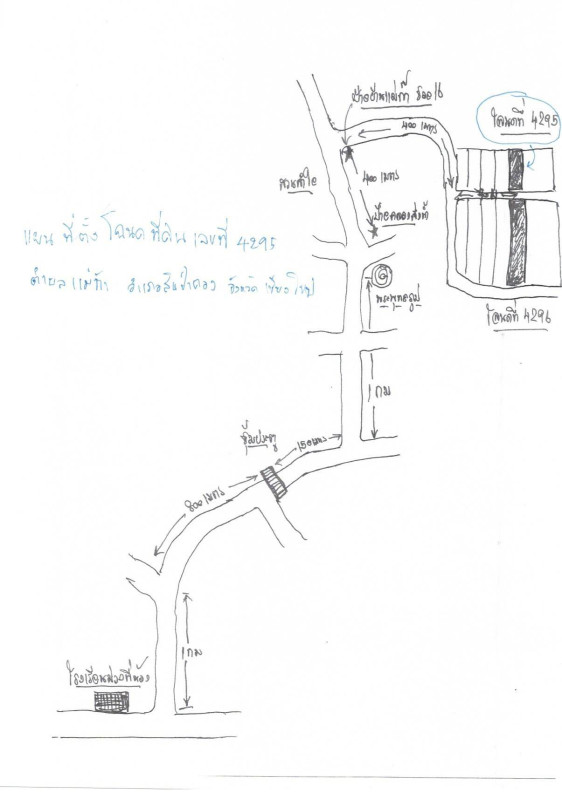 ป้ายบ้านแม่ก๊า ซอย 16
400 เมตร
โฉนดที่ 4295
สวนลำไย
400 เมตร
แผนที่ตั้งโฉนดที่ดินเลขที่ 4295
ตำบลแม่ก๊า อำเภอสันป่าตอง จังหวัดเชียงใหม่
พระพุทธรูป
โฉนดที่ 4296
1 กม
ซุ้มประตู
150 เมตร
800 เมตร
1 กม